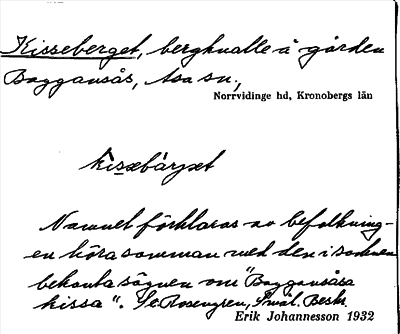 Kisseberget, bergknalle å gården
Baggansås, Asa sn,
Norrvidinge hd, Kronobergs län
kisəbárjət
Namnet förklaras av befolkning-
en höra samman med den i socknen
bekanta sägnen om "Baggansåsa
kissa". Se Rosengren, Smål. Beskr.
Erik Johannesson 1932